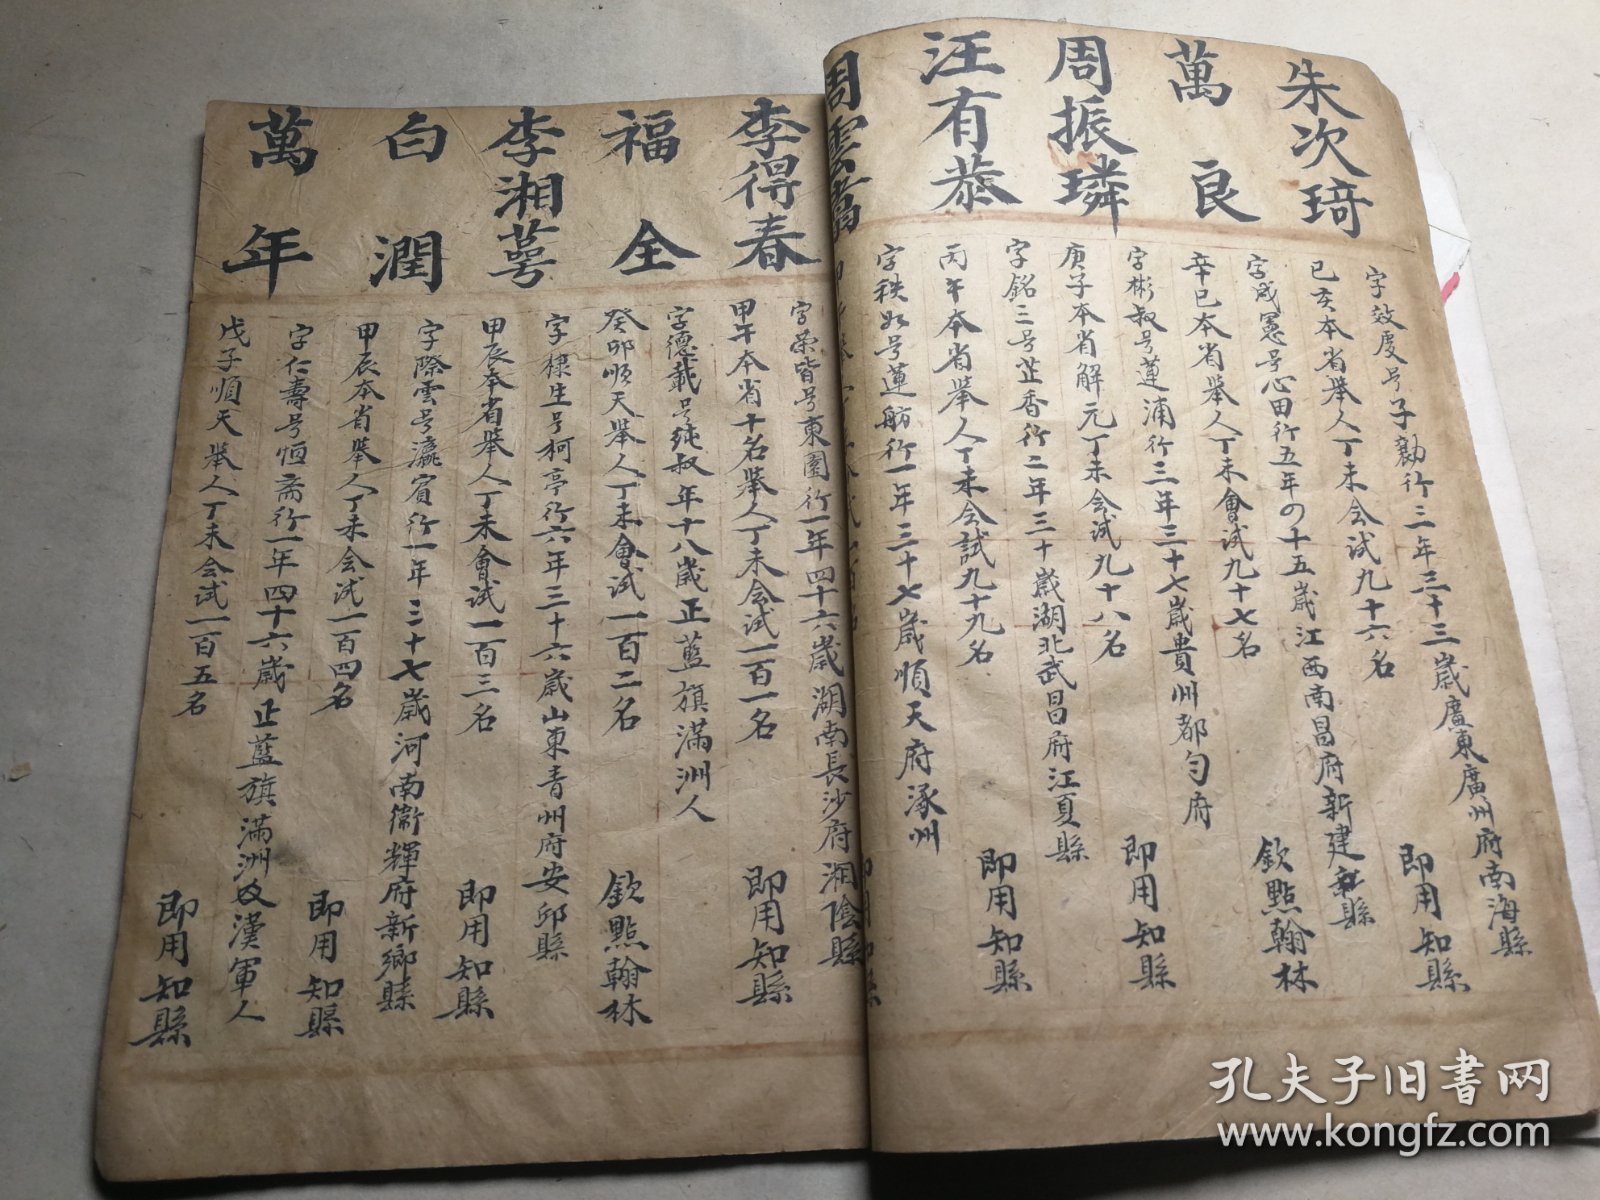 朱次琦
字效虔号子勷行三年三十三歲廣東廣州府南海縣
己亥本省舉人丁未会試九十六名
即用知縣
萬良
字成憲号心田行五年四十五歲江西南昌府新建縣
辛巳本省舉人丁未會試九十七名
欽點翰林
周振璘
字彬叔号蓮浦行三年三十七歲貴州都勻府
庚子本省解元丁未会試九十八名
即用知縣
汪有恭
字銘三号芷香行二年三十歲湖北武昌府江夏縣
丙午本省舉人丁未会試九十九名
即用知縣
字秩如号蓮舫行一年三十七歲順天府涿州
即用知縣
李得春
字荣皆号東園行一年四十六歲湖南長沙府湘陰縣
甲午本省十名舉人丁未会試一百一名
即用知縣
福全
字德載号純叔年十八歲正藍旗滿洲人
癸卯順天舉人丁未會試一百二名
欽點翰林
李湘萼
字棣生号柯亭行六年三十六歲山東青州府安邱縣
甲辰本省舉人丁未會試一百三名
即用知縣
白潤
字際雲号瀛賓行一年三十七歲河南衞輝府新鄉縣
甲辰本省舉人丁未会試一百四名
即用知縣
萬年
字仁壽号恒斋行一年四十六歲正藍旗滿洲漢軍人
戊子順天舉人丁未会試一百五名
即用知縣
孔夫子旧書网
www.kongfz.com